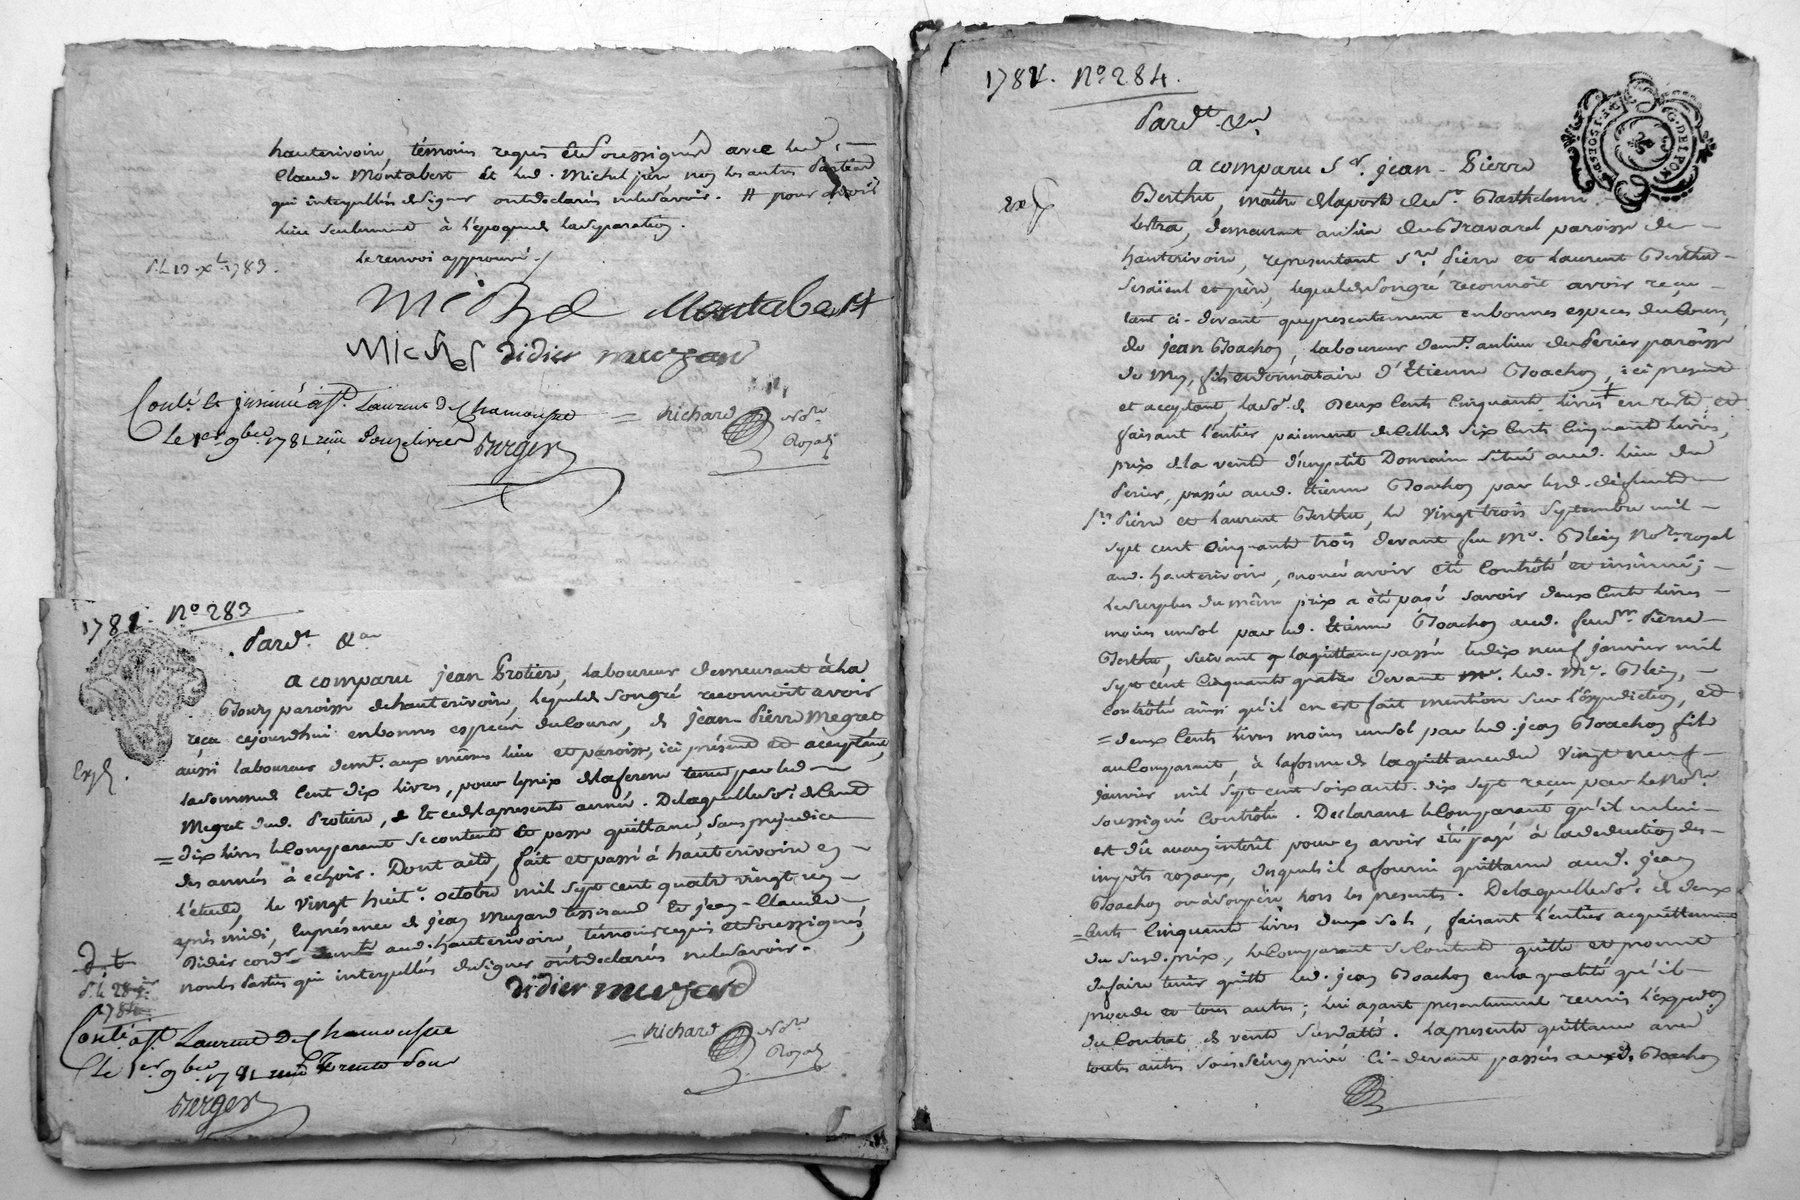 hauterivoire, témoins requis et soussignés avec led.
Claude Montabert et led. Michel père non les autres parties
qui interpellés de signer ont déclarés ne le savoir. # pour avoir
lieu seulement à l'époque de la separation.
le renvoi approuvé./
d. L. 19 Xbre 1783.
Michel Montabert
Michel didier muzard
Conté. et insinué à St. Laurent De Chamousset
= Richard Nore
Royal
Le 1er 9bre 1781 reçu douze livres
Berger
1781. No 283
Pardt. &a
a comparu jean Protiere, laboureur demeurant à la
Bourg paroisse de hauterivoire, lequel de son gré reconnoit avoir
recu cejourdhui en bonnes especes du Cours, de jean Pierre Megret
aussi laboureur demt. aux mêmes lieu et paroisse, ici présent et acceptant,
Exp.
la somme de Cent dix livres, pour le prix de la ferme tenue par led.
Megret dud. Protiere, et ce de la presente année. De laquelle so. de Cent
= dix livres le Comparant se contente et passe quittance, sans prejudice
des années à echoir. Dont acte, fait et passé à hauterivoire en
l'étude, le vingt huit octobre mil sept cent quatre vingt un
après midi, en présence de jean Muzard tisserand et jean-Claude
Didier cordr. aud. hauterivoire, témoins requis et soussignés,
non les parties qui interpellés de signer ont déclarés ne le savoir.
didier muzard
Conté. à St. Laurent De Chamousset
= Richard Nore
Royal
Le 1er 9bre 1781 reçu trente sous
Berger
1781. No 284.
Pardt. &a
G. DE LYON
a comparu Sr. jean-Pierre
Exp.
Berthet, maître de la poste de Sr. Barthelemi
lestra, demeurant au lieu du Bravard paroisse de
hauterivoire, representant Srs. Pierre et Laurent Berthet
ses aïeul et père, lequel de son gré reconnoit avoir recu
tant ci-devant que presentement en bonnes especes du Cours,
de jean Boachon, laboureur demt. au lieu du Perier paroisse
de Mey, fils et donnataire d'Etienne Boachon, ici present
et acceptant, la so. de Deux Cents Cinquante livres en reste, et
faisant l'entier paiement de celle de Six Cents Cinquante livres,
prix de la vente d'un petit Domaine situé aud. lieu du
Perier, passée aud. Etienne Boachon par lesd. défunts
Srs. Pierre et Laurent Berthet, le vingt trois Septembre mil
sept cent Cinquante trois devant feu Me. Blein Nore. royal
aud. hauterivoire, énoncé avoir été Contrôlé et insinué;
le surplus du même prix a été payé savoir deux Cents livres
moins un sol par led. Etienne Boachon aud. feu Sr. Pierre
Berthet, suivant la quittance passée le dix neuf janvier mil
sept cent Cinquante quatre devant led. Me. Blein,
contrôlée ainsi qu'il en est fait mention sur l'éxpédiction, et
= deux Cents livres moins un sol par led. jean Boachon fils
au Comparant, à la forme de la quittance du vingt neuf
janvier mil sept cent soixante-dix sept reçue par le Nore.
soussigné Contrôlée. Declarant le Comparant qu'il ne lui
est dû aucun intérêt pour en avoir été payé à la deduction des
impôts royaux, desquels il a fourni quittance aud. jean
Boachon ou à son père hors les presents. De laquelle so. de deux
= Cents Cinquante livres deux sols, faisant l'entier acquittement
du susd. prix, le Comparant se Contente quitte et promet
de faire tenir quitte led. jean Boachon en la qualité qu'il
procede et tous autres; lui ayant presentement remis l'expedon.
du Contrat de vente susdatté. La presente quittance avec
toutes autres sous seing privé ci-devant passées auxd. Boachon